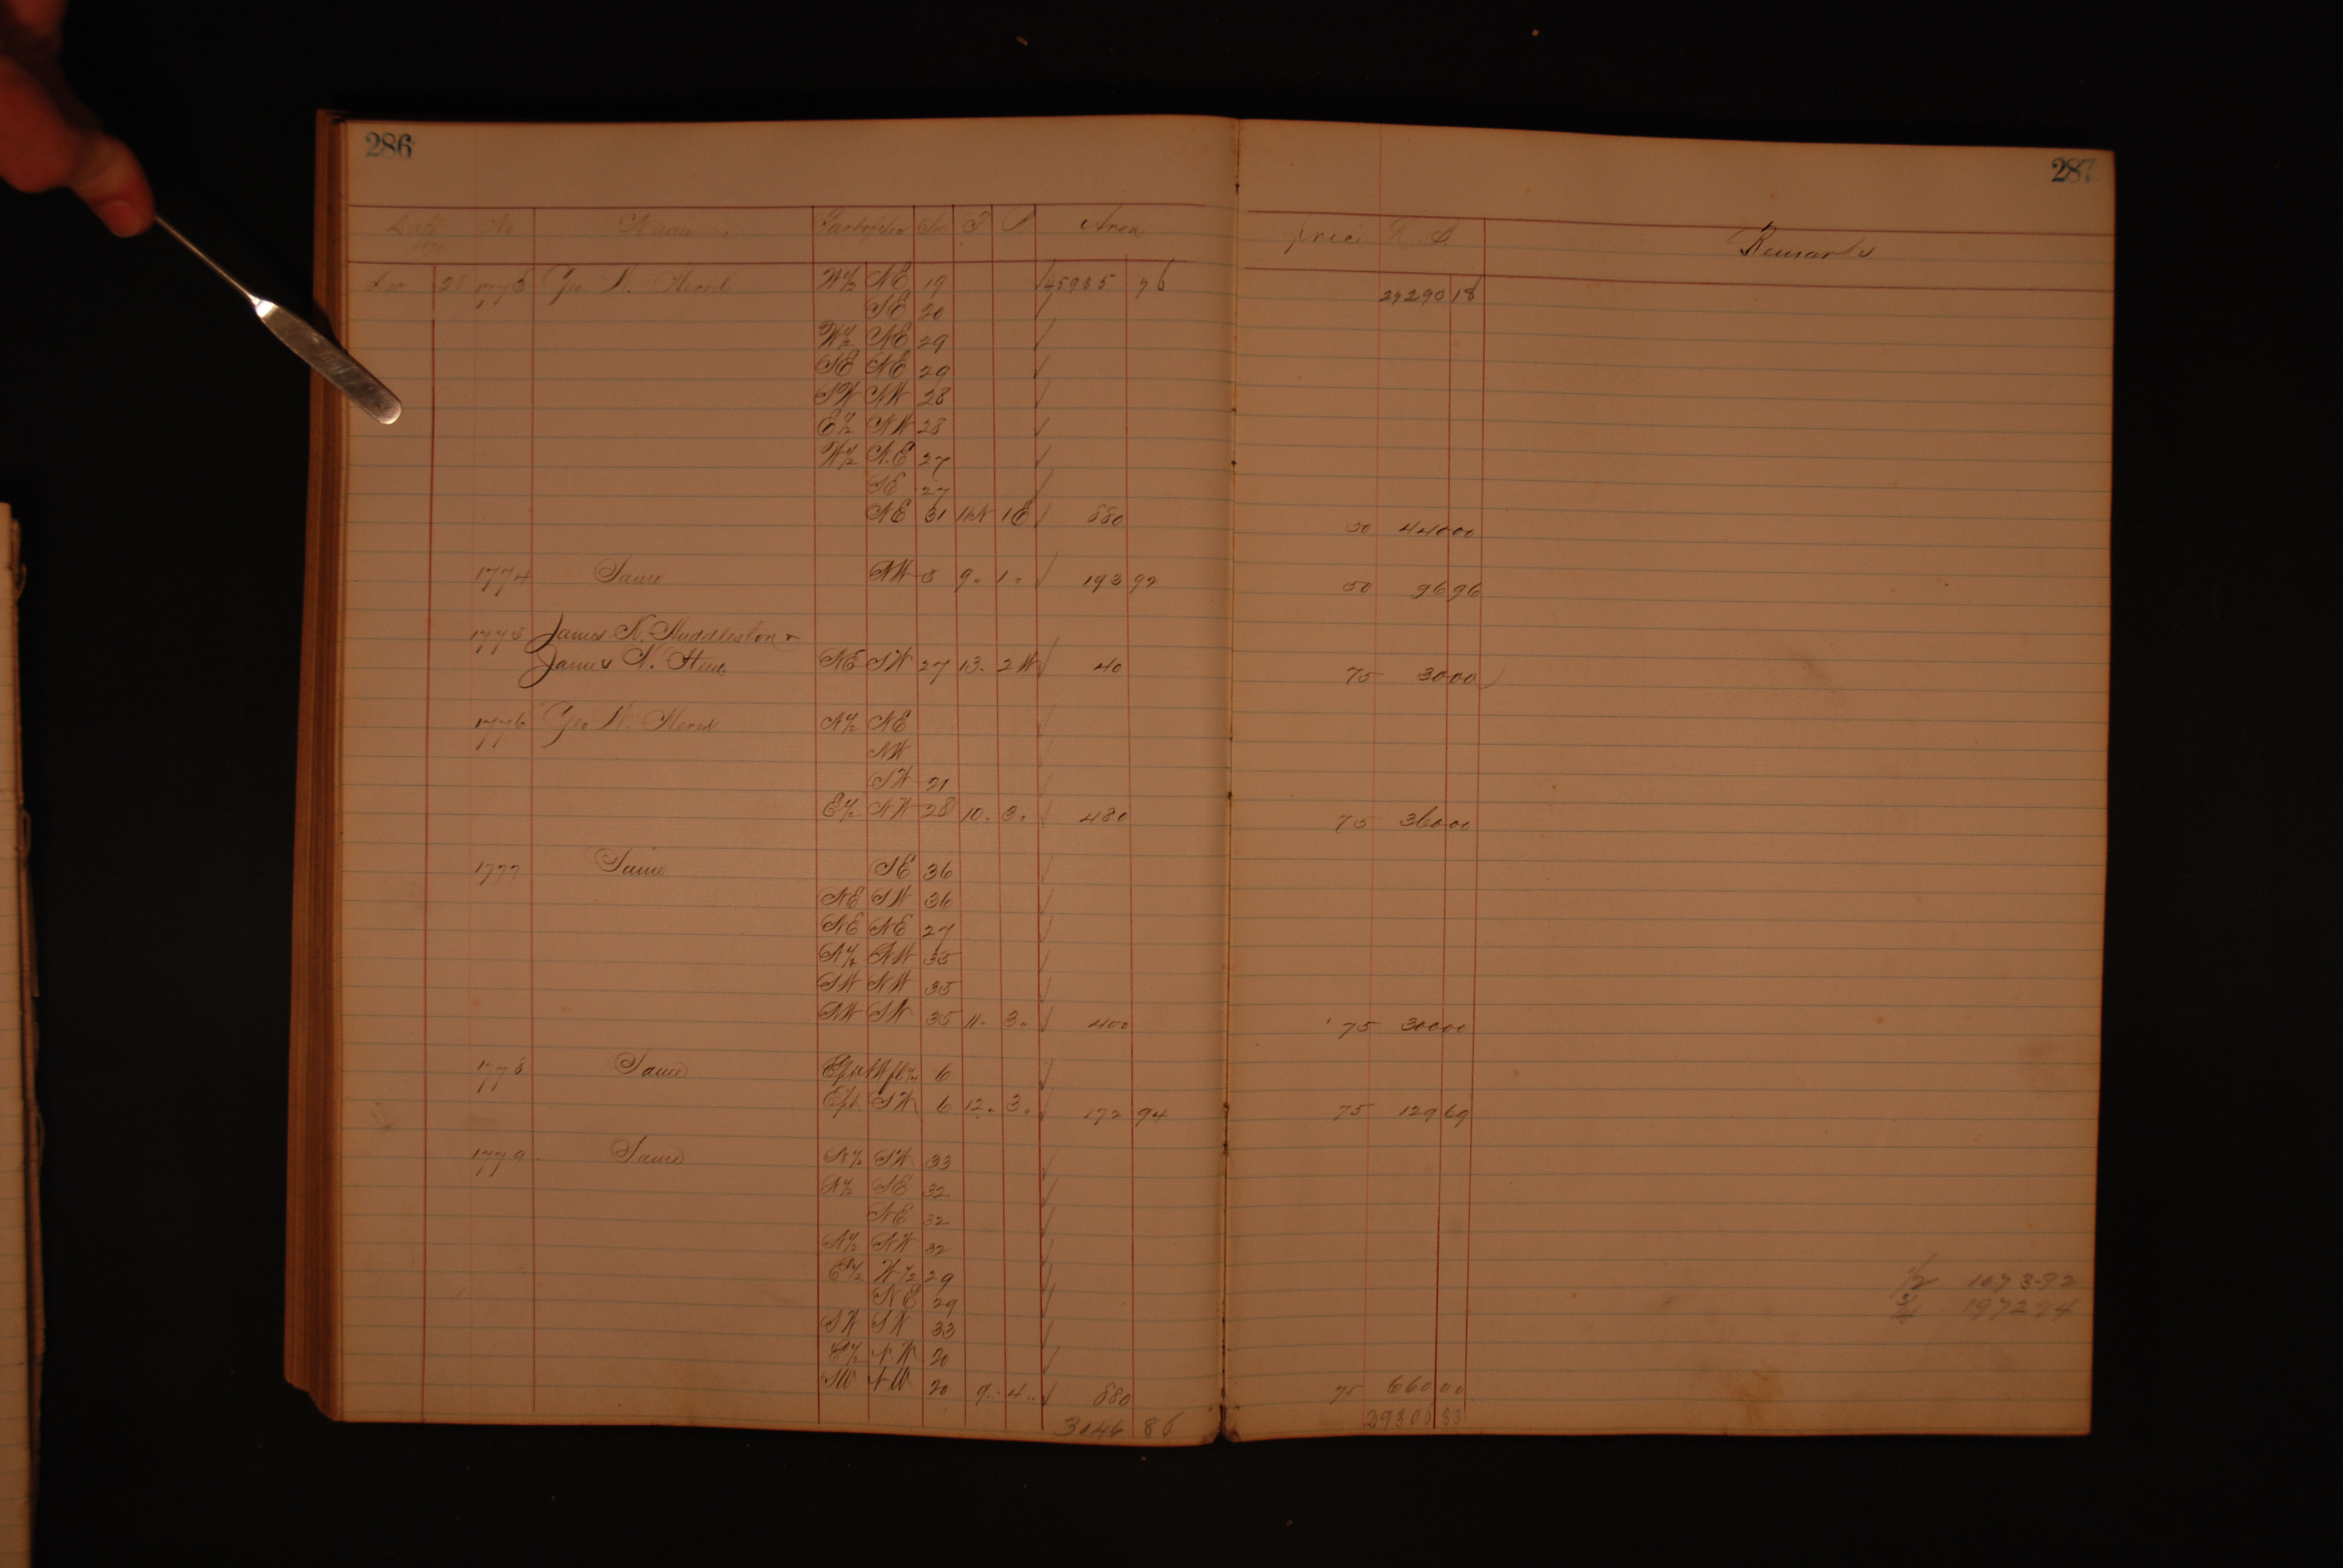 286
287
Date No Name Part of Sec Sec T R Area
Price Remarks
Dec 28 1773 Geo W. W½ NE 19 45935 76 29290 18
SE 20
W½ NE 29
SE NE 29
SW NW 28
E½ NW 28
W½ N.E 27
SE 27
NE 31 11N 1E 880 50 440 00
1774 Same NW 5 9 " 1 " 193 92 50 96 96
1775 James N. Huddleston &
James N. NE SW 27 13 " 2 W 40 75 30 00
1776 Geo W. N½ NE
NW
SW 21
E½ NW 28 10 " 3 " 480 75 360 00
1777 Same SE 36
NE SW 36
NE NE 27
N½ NW 35
SW NW 35
NW SW 35 11 " 3 " 400 75 300 00
1778 Same 6
Ept SW 6 12 " 3 " 172 94 75 129 69
1779 Same N½ SW 33
N½ SE 32
NE 32
N½ NW 32
E½ W½ 29
NE 29
SW SW 33
E½ N.W 20
SW N.W 20 9 " 4 " 880 75 660 00
3146 86
½ 1073.92
¾ 1972 94